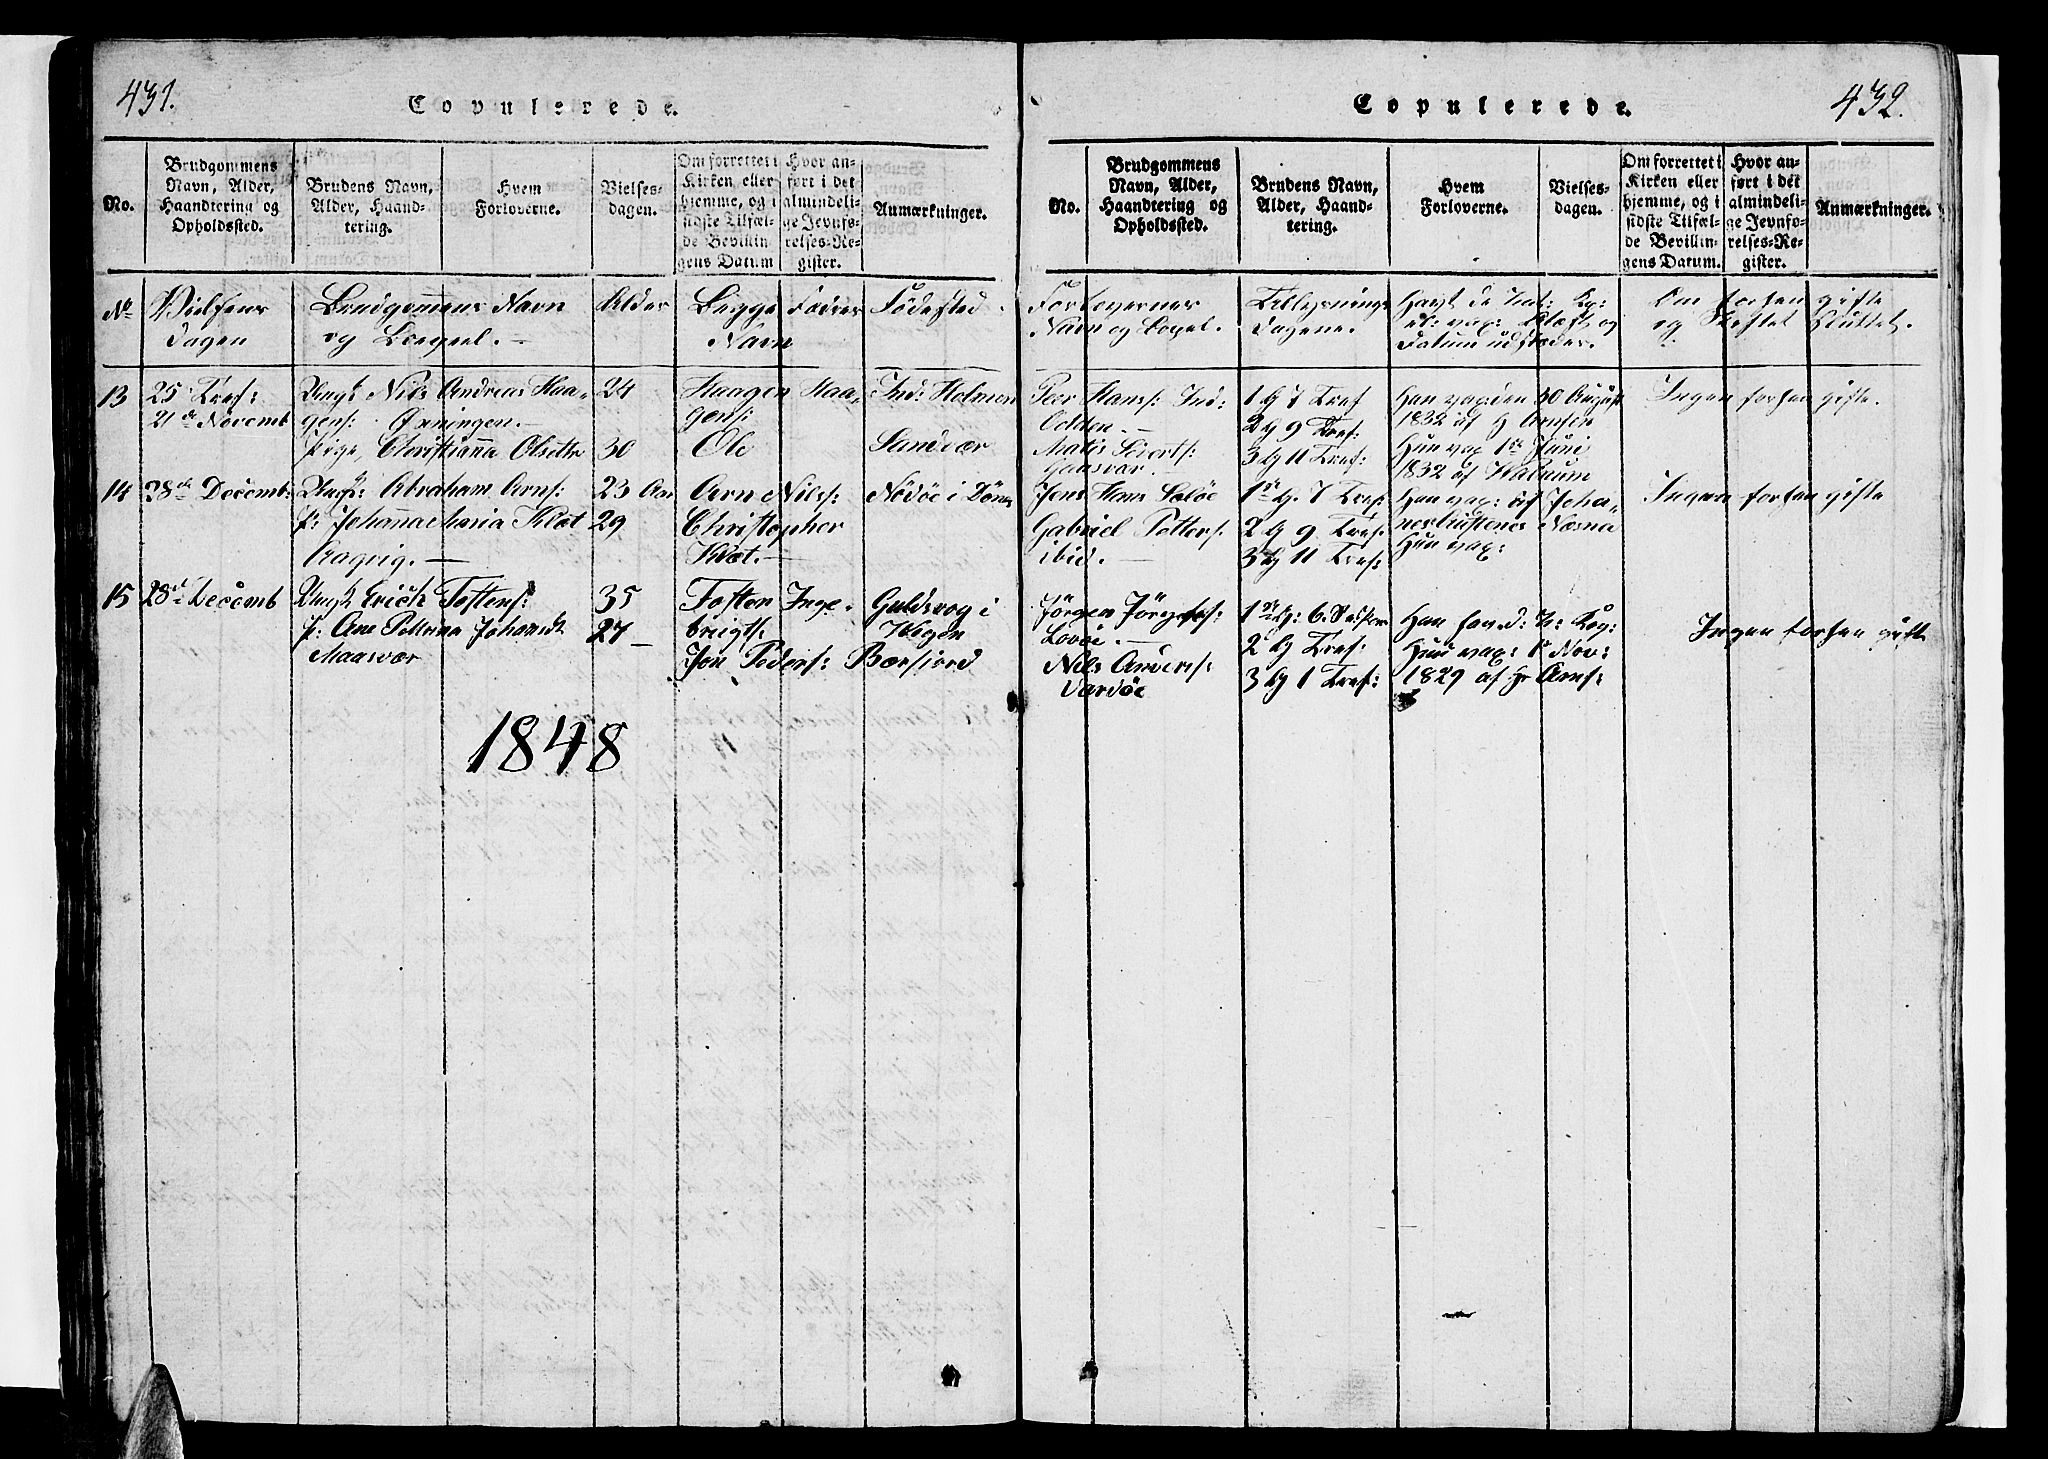 431.
Copulerede.
No.
Brudgommens
Navn, Alder,
Haandtering og
Opholdssted.
Brudens Navn,
Alder, Haand-
tering.
Hvem
Forloverne.
Vielses-
dagen.
Om forrettet i
Kirken eller
hjemme, og i
sidste Tilfæl-
de Bevillin-
gens Datum
Hvor an-
ført i det
almindeli-
ge Jevnfø-
relses-Re-
gister.
Anmærkninger.
No
Vielsens
Dagen
Brudgommens Navn
og Bopæl.
Alder
Begge Fædres
Navn
Fødested
13
25 Tref:
21de Novemb
Ungk Nils Andreas Haa-
gens: Øxningen.
Pige, Christianna Olsdtr
24
30
Haagen Haa-
gens:
Ole
Ind: Holmen
Sandvær
14
28de Decemb:
Ungk: Abraham Arns:
P: Johanna Maria Klæt
Aagvig.
23 Aar
29
Arn Nils:
Christopher
Klæt.
Nodøe i Dønæs
15
28de Decemb
Ungk Erich Tostens:
P: Ane Pettrina Johansdt
Maasvær
35
27
Tosten Inge-
brigts:
Jon Peders:
Guldsvog i
Vegøn
Bærfjord
1848
432.
Copulerede.
No.
Brudgommens
Navn, Alder,
Haandtering og
Opholdssted.
Brudens Navn,
Alder, Haand-
tering.
Hvem
Forloverne.
Vielses-
dagen.
Om forrettet i
Kirken eller
hjemme, og i
sidste Tilfæl-
de Bevillin-
gens Datum.
Hvor an-
ført i det
almindeli-
ge Jevnfø-
relses-Re-
gister.
Anmærkninger.
Forlovernes
Navn og Bopæl.
Tillysnings
Dagene.
Havt de nat: Ko:
el: vax: Attest og
Datum udstædes.
Om forhen gifte
og Skiftet sluttet.
Peer Hans: Ind:
Odden.
Matis Siverts:
Gaasvær.
1 G 7 Tref
2 G 9 Tref:
3 G 11 Tref:
Han vax: den 30 August
1832 af H Arnsen
Hun vax 1ste Juni
1832 af
Ingen forhen gifte.
Jens Hans Saløe
Gabriel Petters:
ibid.
1ste G. 7 Tref:
2 G 9 Tref:
3 G 11 Tref:
Han vax: af Joha-
Næsna
Hun vax:
Ingen forhen gifte
Jørgen Jørgens:
Lovøe
Nils Anders:
Vardøe
1ste G: 6.
2 G Tref:
3 G 1 Tref:
Hun vax: 1 Nov:
1829 af Hr Arns:
Ingen forhen gifte